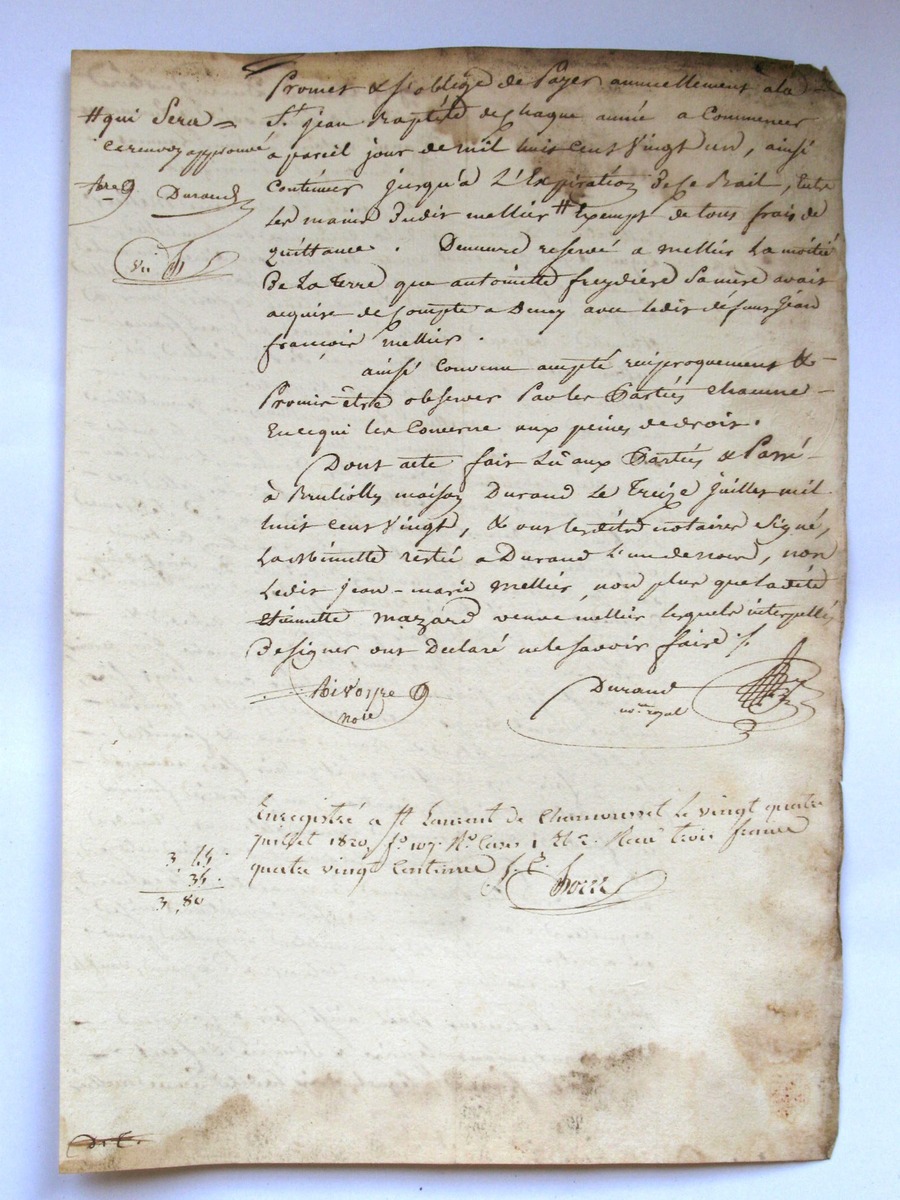 # qui Sera =
ce renvoy approuvé
Durand
Promet & s'oblige de Payer annuellement a la
St jean Baptiste de chaque année a Commencer
a pareil jour de mil huit cent Vingt un, ainsi
Continuer jusqu'à L'Expiration de Ce Bail, entre
Les mains dudit mellier # Exempt de tous frais de
quittance. Demeure reservé a mellier La moitié
De La Terre que antoinette freydiere Sa mère avait
acquise de Compte a Demy avec Ledit défunt jean
françois mellier.
ainsi Convenu accepté reciproquement &
Promis être observer Par les Parties chacune
En ce qui les Concerne aux peines de droit.
Dont acte fait Lû aux Parties & Passé
à Brulliolly maison Durand Le Treize juillet mil
huit cent Vingt, & ont lesdits notaires Signé,
La Minutte restée a Durand L'un de nous, non
Ledit jean-marie mellier, non plus que ladite
Etiennette mazard veuve mellier lesquels interpellés
De signer ont Declaré ne le Savoir faire ./.
note
Durand
nre royal
Enregistré à St Laurent de Chamousset le vingt quatre
juillet 1820, fo 107 Ro Cases 1 et 2. Reçu trois francs
quatre vingt Centimes
3 45.
35.
3,80